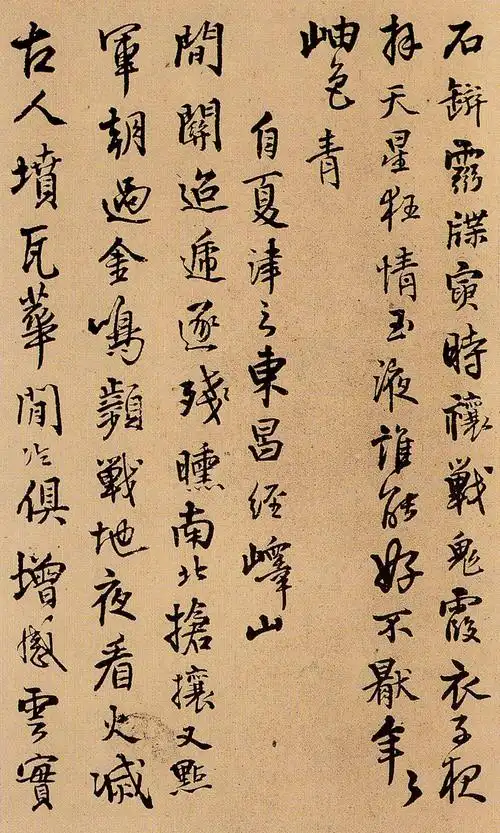 石靈牒寅時禳戰鬼霞衣子夜
拜天星狂情玉液誰能好不厭年〻
岫色青
自夏津之東昌經嶧山
間關迢遞逐殘曛南北搶攘又點
軍朝過金鳴頻戰地夜看火滅
古人墳瓦華間冷俱增感雲實